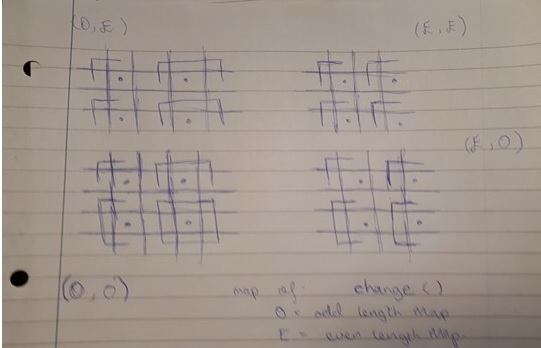 (O, E)
(E, E)
(E, O)
(O, O)
map of change()
O = odd length Map
E = even length Map.